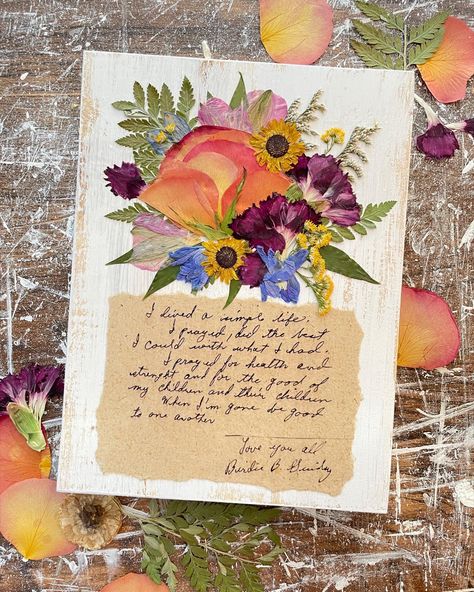 I lived a simple life.
I prayed, did the best
I could with what I had.
I prayed for health and
strenght and for the good of
my children and their children
When I'm gone be good
to one another
Love you all
Burdie B.